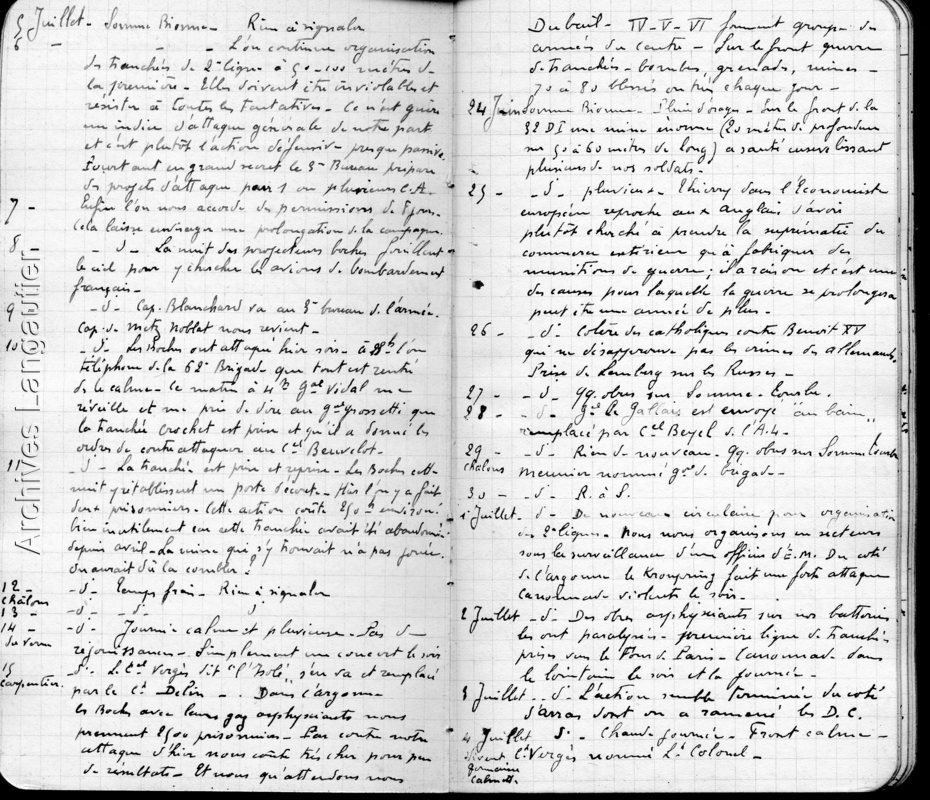 5 Juillet - Somme Bionne - Rien à signaler
6 - - - L'on continue organisation
des tranchées de 2e ligne à 50-100 mètres de
la première - Elles doivent être inviolables et
résister à toutes les tentatives - Ce n'est guère
un indice d'attaque générale de notre part
et c'est plutôt l'action défensive presque passive.
Pourtant en grand secret le 3e Bureau prépare
des projets d'attaque pour 1 ou plusieurs C.A.
7 - Enfin l'on nous accorde des permissions de 8 jours.
Cela laisse envisager une prolongation de la campagne.
8 - d - La nuit des projecteurs boches fouillent
le ciel pour y chercher les avions de bombardement
français -
9 - d - Cap. Blanchard va au 3e bureau de l'armée.
Cap. de Metz Noblat nous revient -
10 - - d - Les Boches ont attaqué hier soir - à l'on
téléphone de la 62e Brigade que tout est rentré
dans le calme - Ce matin à 4h Gal Vidal me
réveille et me prie de dire au gal Grossetti que
la tranchée Crochet est prise et qu'il a donné les
ordres de contre attaquer au Cel Beuvelot -
11 - d - La tranchée est prise et reprise - Les Boches cette
nuit y établissent un poste d'écoute - Hier l'on y a fait
deux prisonniers - Cette action coûte 250 environ
bien inutilement car cette tranchée avait été abandonnée
depuis avril - La mine qui s'y trouvait n'a pas jouée.
On aurait dû la combler !
12 - - d - Temps frais - Rien à signaler
Châlons
13 - - d - - d - d
14 - - d - Journée calme et pluvieuse - Pas de
réjouissances - Simplement un concert le soir
15 d - Lt Cel Vergès dit "l'Isolé" s'en va et remplacé
Carpentier. par le Ct Delin - . Dans l'argonne
les Boches avec leurs gaz asphyxiants nous
prennent 2500 prisonniers - Par contre notre
attaque d'hier nous coûte très cher pour peu
de résultats - Et nous qu'attendons nous
Dubail - IV - V - VI forment groupe des
armées du centre - Sur le front guerre
de tranchées - bombes, grenades, mines -
70 à 80 blessés ou tués chaque jour -
24 Juin Somme Bionne - Pluie d'orage - Sur le front de la
32 DI une mine énorme (20 mètres de profondeur
sur 50 à 60 mètres de long) a sauté ensevelissant
plusieurs de nos soldats -
25 - - d - pluvieux - Thierry dans l'Economiste
européen reproche aux anglais d'avoir
plutôt cherché à prendre la suprématie du
commerce extérieur qu'à fabriquer des
munitions de guerre ; il a raison et c'est une
des causes pour laquelle la guerre se prolongera
peut être une année de plus -
26 - - d - Colère des catholiques contre Benoit XV
qui ne désapprouve pas les crimes des allemands.
Prise de Lemberg sur les Russes -
27 - - d - qq. obus sur Somme-Tourbe.
28 - - d - Gal Le Gallais est envoyé "au bain"
remplacé par Cel Beyel de l'A.4 -
29 - - d - Rien de nouveau - qq. obus sur Somme Tourbe
Châlons meunier nommé gal de brigade -
30 - - d - R. à S.
1 Juillet - d - De nouveau circulaire pour organisation
des 2e lignes - Nous nous organisons en secteurs
sous la surveillance d'un officier d'E.M. Du coté
de l'argonne le Kronprinz fait une forte attaque
canonnade violente le soir -
2 Juillet - d - Des obus asphyxiants sur nos batteries
les ont paralysés - première ligne de tranchées
prises vers le Four de Paris - Canonnade dans
le lointain le soir et la journée -
3 Juillet - - d - L'action semble terminée du coté
d'arras dont on a ramené les D.C.
4 Juillet d - Chaude journée - Front calme -
Ct Vergès nommé Lt Colonel -
germaine
Archives Langautier